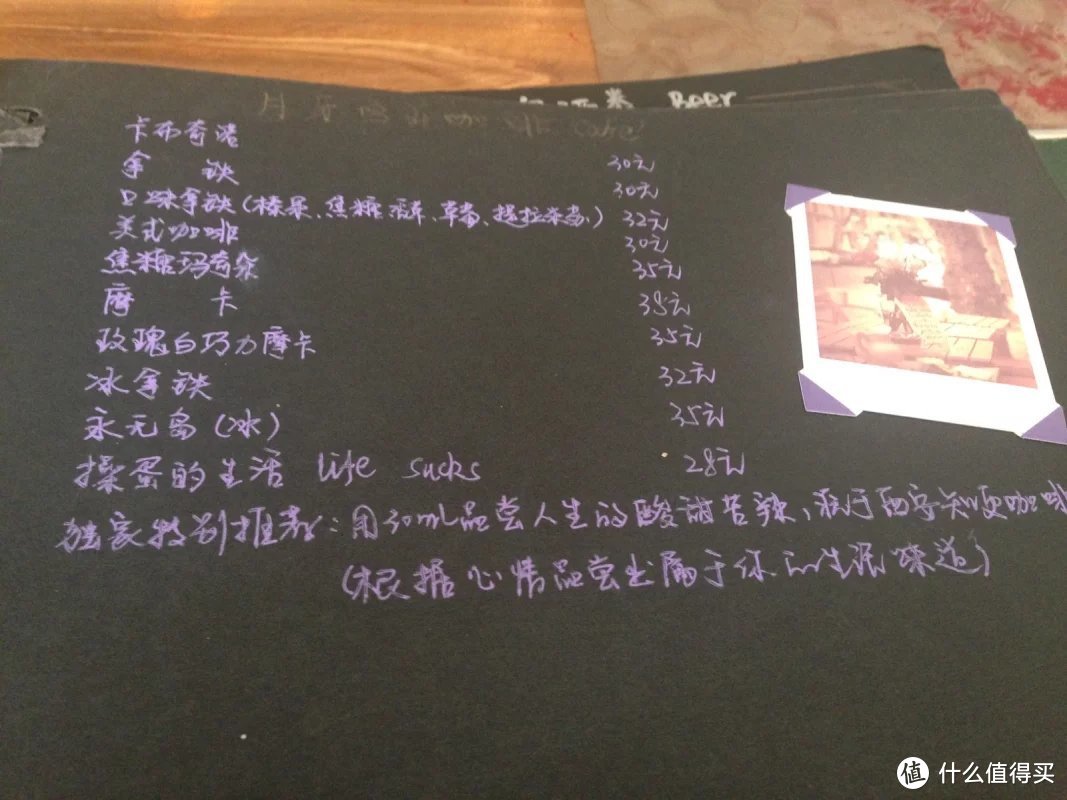 Beer
咖啡 Cafe
卡布奇诺 30元
拿 铁 30元
口味拿铁(榛果、焦糖、香草、提拉米苏) 32元
美式咖啡 30元
焦糖玛奇朵 35元
摩 卡 35元
玫瑰白巧力摩卡 35元
冰拿铁 32元
永无岛(冰) 35元
操蛋的生活 life sucks 28元
独家特别推荐:用30mL品尝人生的酸甜苦辣,咖啡
(根据心情品尝出属于你的生活味道)
值 什么值得买